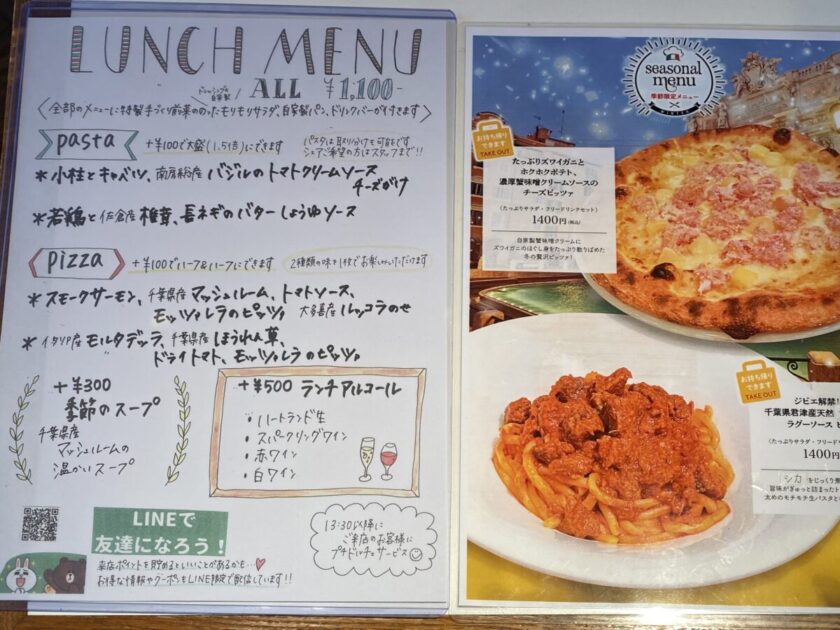 LUNCH MENU
ドレッシングも自家製
ALL ¥1.100-
全部のメニューに特製手づくり前菜ののったモリモリサラダ、自家製パン、ドリンクバーが付きます
pasta
+¥100で大盛(1.5倍)にできます
パスタは取り分けも可能です
シェアご希望の方はスタッフまで!!
*小柱とキャベツ、南房総産バジルのトマトクリームソース
チーズがけ
*若鶏と佐倉産椎茸、長ネギのバターしょうゆソース
pizza
+¥100でハーフ&ハーフにできます
2種類の味を1枚でお楽しみいただけます
*スモークサーモン、千葉県産マッシュルーム、トマトソース、
モッツァレラのピッツァ 大多喜産ルッコラのせ
*イタリア産モルタデッラ、千葉県産ほうれん草、
ドライトマト、モッツァレラのピッツァ
+¥300
季節のスープ
千葉県産
マッシュルームの
温かいスープ
+¥500 ランチアルコール
・ハートランド生
・スパークリングワイン
・赤ワイン
・白ワイン
LINEで
友達になろう!
来店ポイントを貯めるといいことがあるかも…
お得な情報やクーポンもLINE限定で配信しています!!
13:30以降に
ご来店のお客様に
プチドルチェサービス
seasonal
menu
季節限定メニュー
WINTER
お持ち帰り
できます
TAKE OUT
たっぷりズワイガニと
ホクホクポテト、
濃厚蟹味噌クリームソースの
チーズピッツァ
(たっぷりサラダ・フリードリンクセット)
1400円(税込)
自家製蟹味噌クリームに
ズワイガニのほぐし身をたっぷり散りばめた
冬の贅沢ピッツァ!
お持ち帰り
できます
TAKE OUT
ジビエ解禁!
千葉県君津産天然
ラグーソース
(たっぷりサラダ・フリード
1400円
シカをじっくり煮
旨味がぎゅっと詰まったト
太めのモチモチ生パスタと